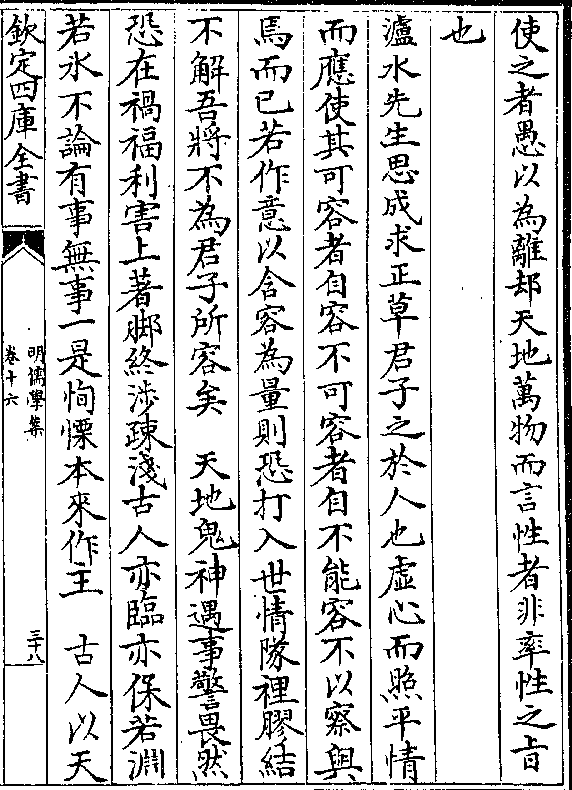 使之者愚以為離却天地萬物而言性者非率性之㫖
也
瀘水先生思成求正草君子之於人也虛心而照平情
而應使其可容者自容不可容者自不能容不以察與
焉而已若作意以含容為量則恐打入世情隊裡膠結
不解吾將不為君子所容矣 天地鬼神遇事警畏然
恐在禍福利害上著脚終涉疎淺古人亦臨亦保若淵
若氷不論有事無事一是恂慄本來作主 古人以天
欽定四庫全書
明儒學案
卷十六
三十八